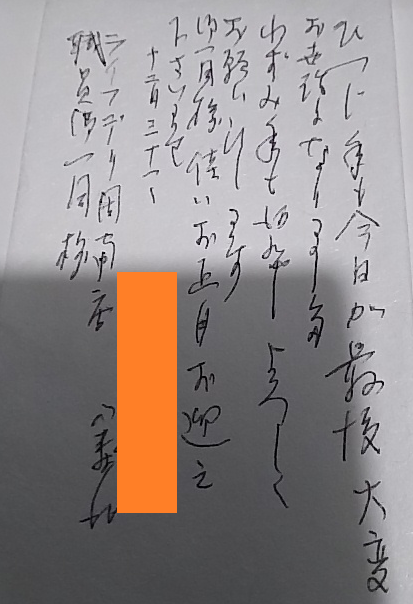 ひつじ年も今日が最後 大変
お世話になりました
ねずみ年も よろしく
お願いいたします
御一同様 佳いお正月お迎え
下さいませ
十二月三十一
ライフデリ 南店
職員御一同様